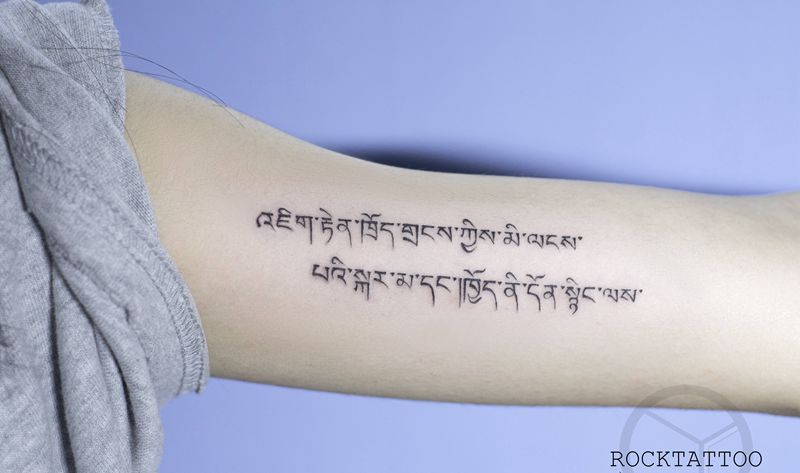 འཇིག་རྟེན་ཁྲོད་གྲངས་ཀྱིས་མི་ལངས་
པའི་སྐར་མ་དང་།ཁྱོད་ནི་དོན་སྙིང་ལས་
ROCKTATTOO